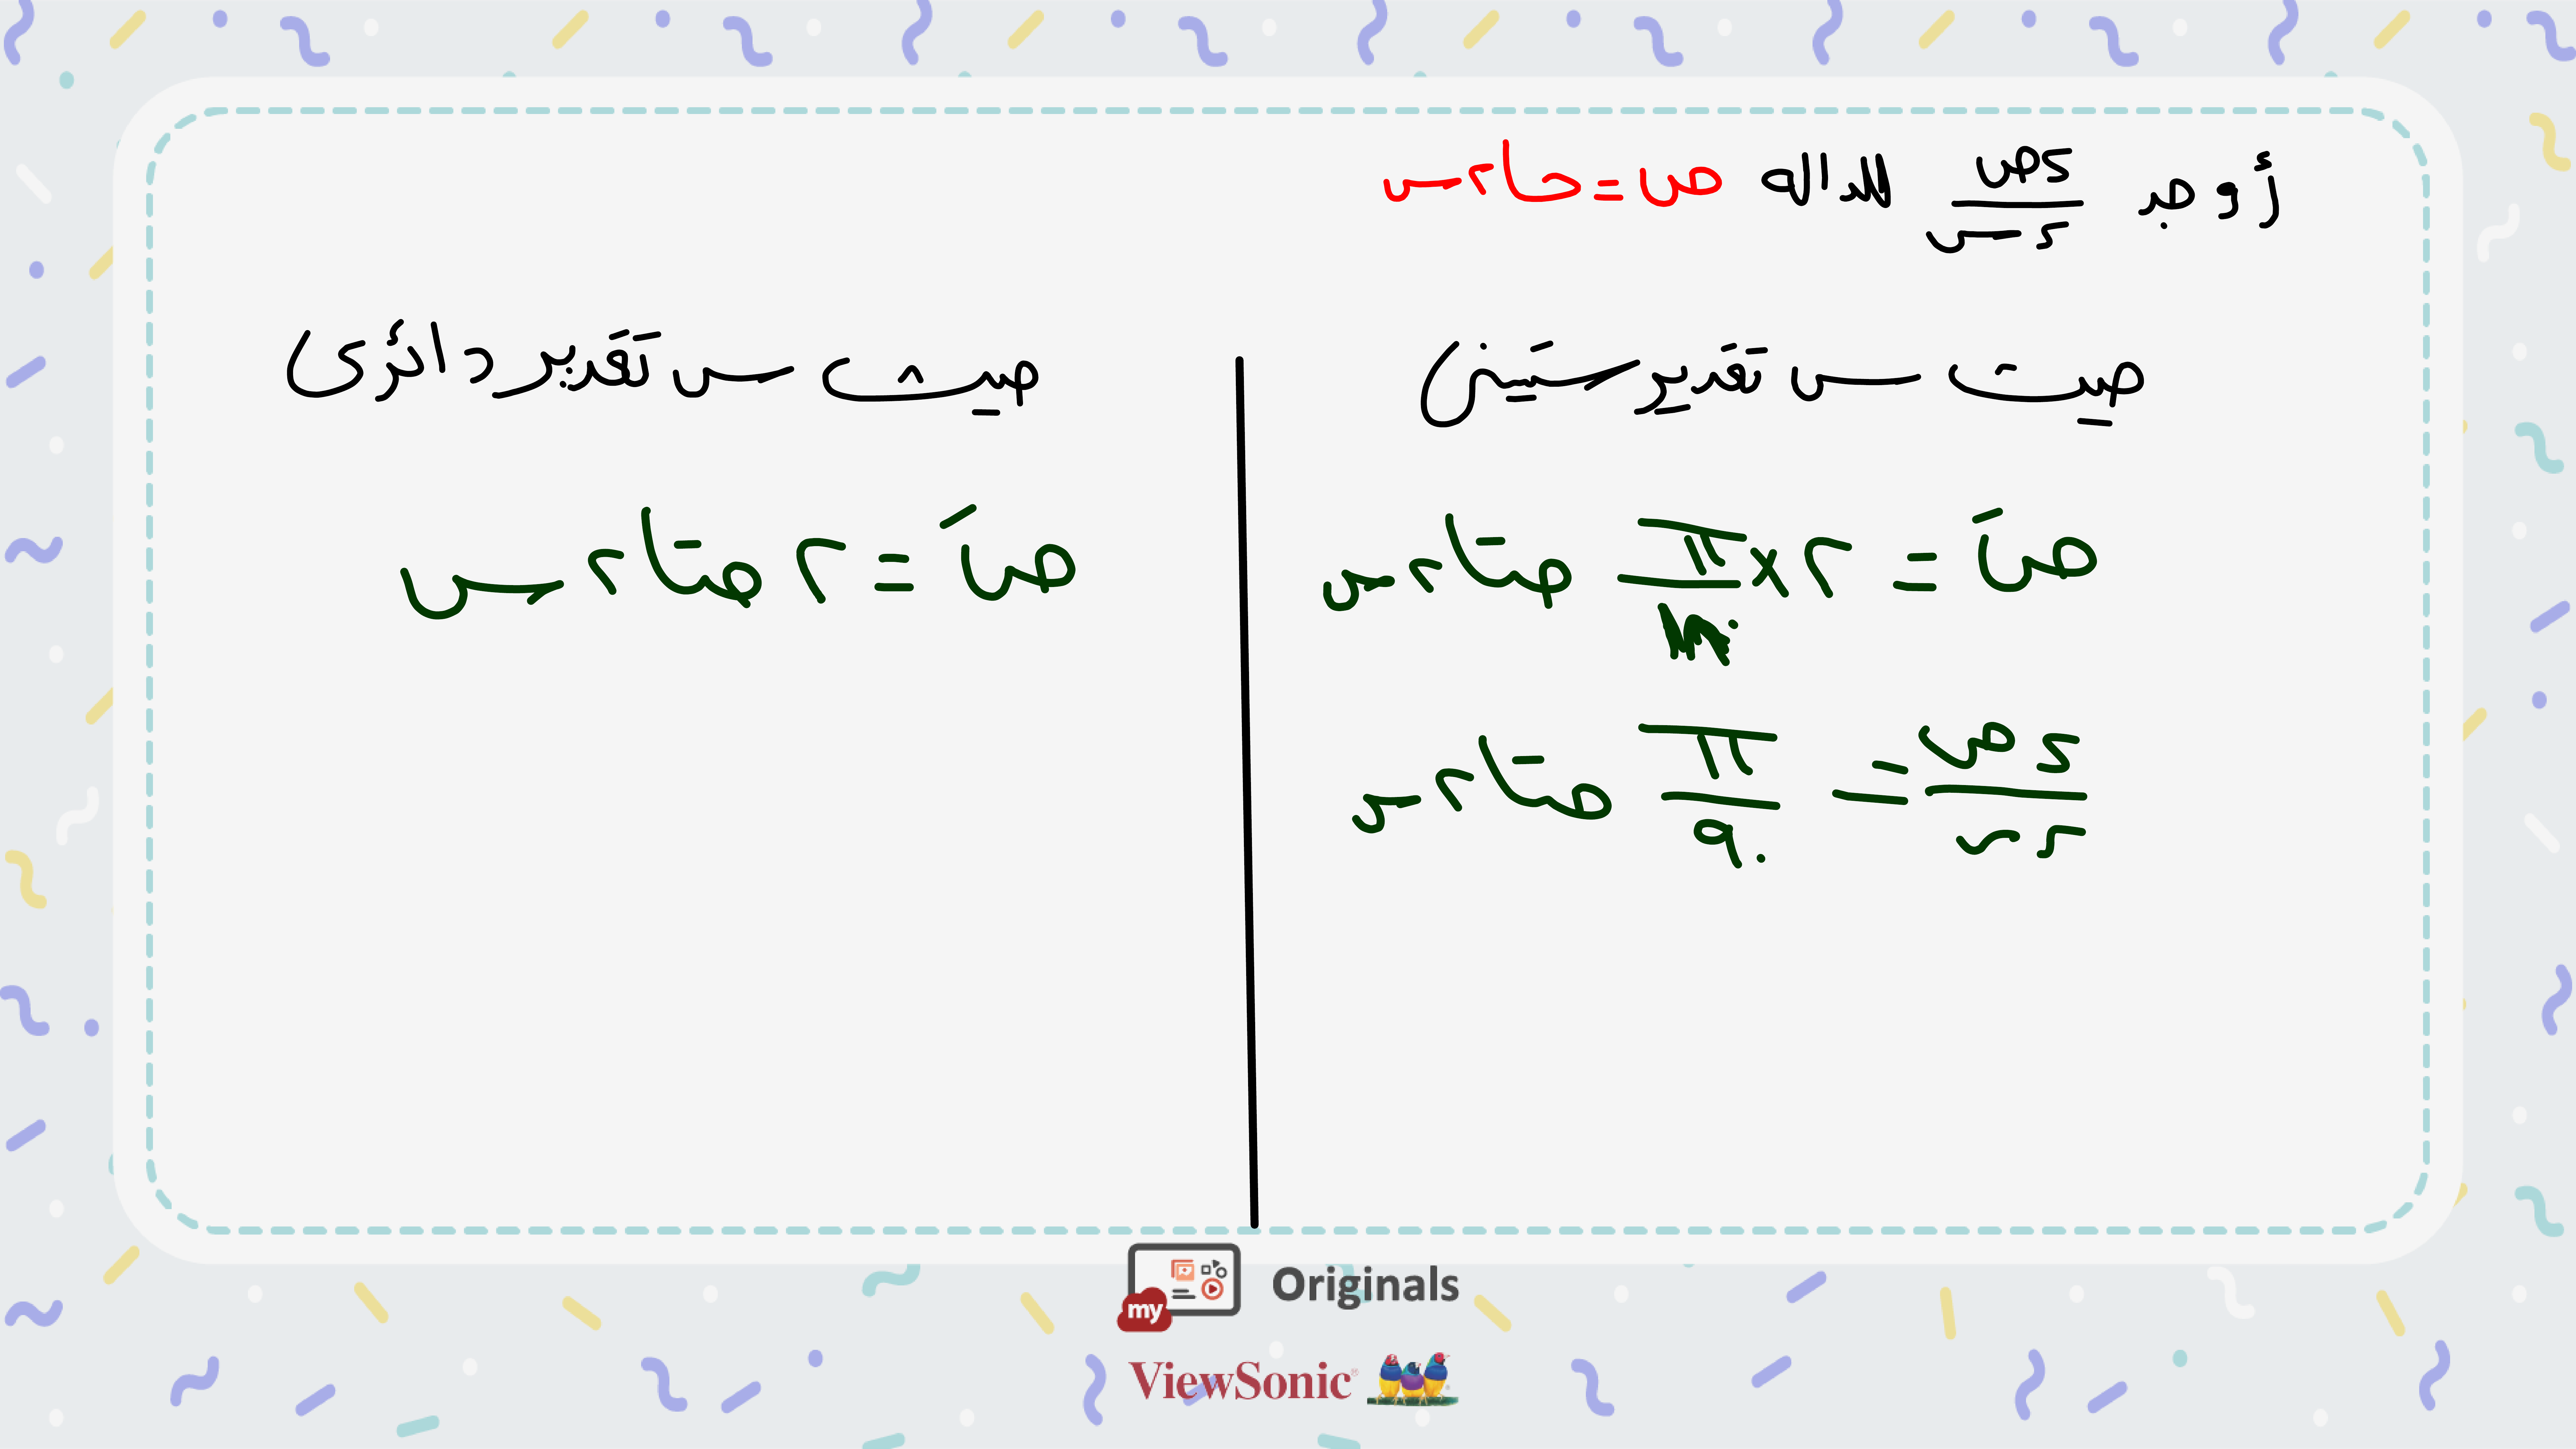 أوجد ءص/ءس للداله ص = حا٢س
حيث س تقدير ستيني
صَ = ٢ × π/١٨٠ حتا٢س
ءص/ءس = π/٩٠ حتا٢س
حيث س تقدير دائرى
صَ = ٢ حتا٢س
my Originals
ViewSonic